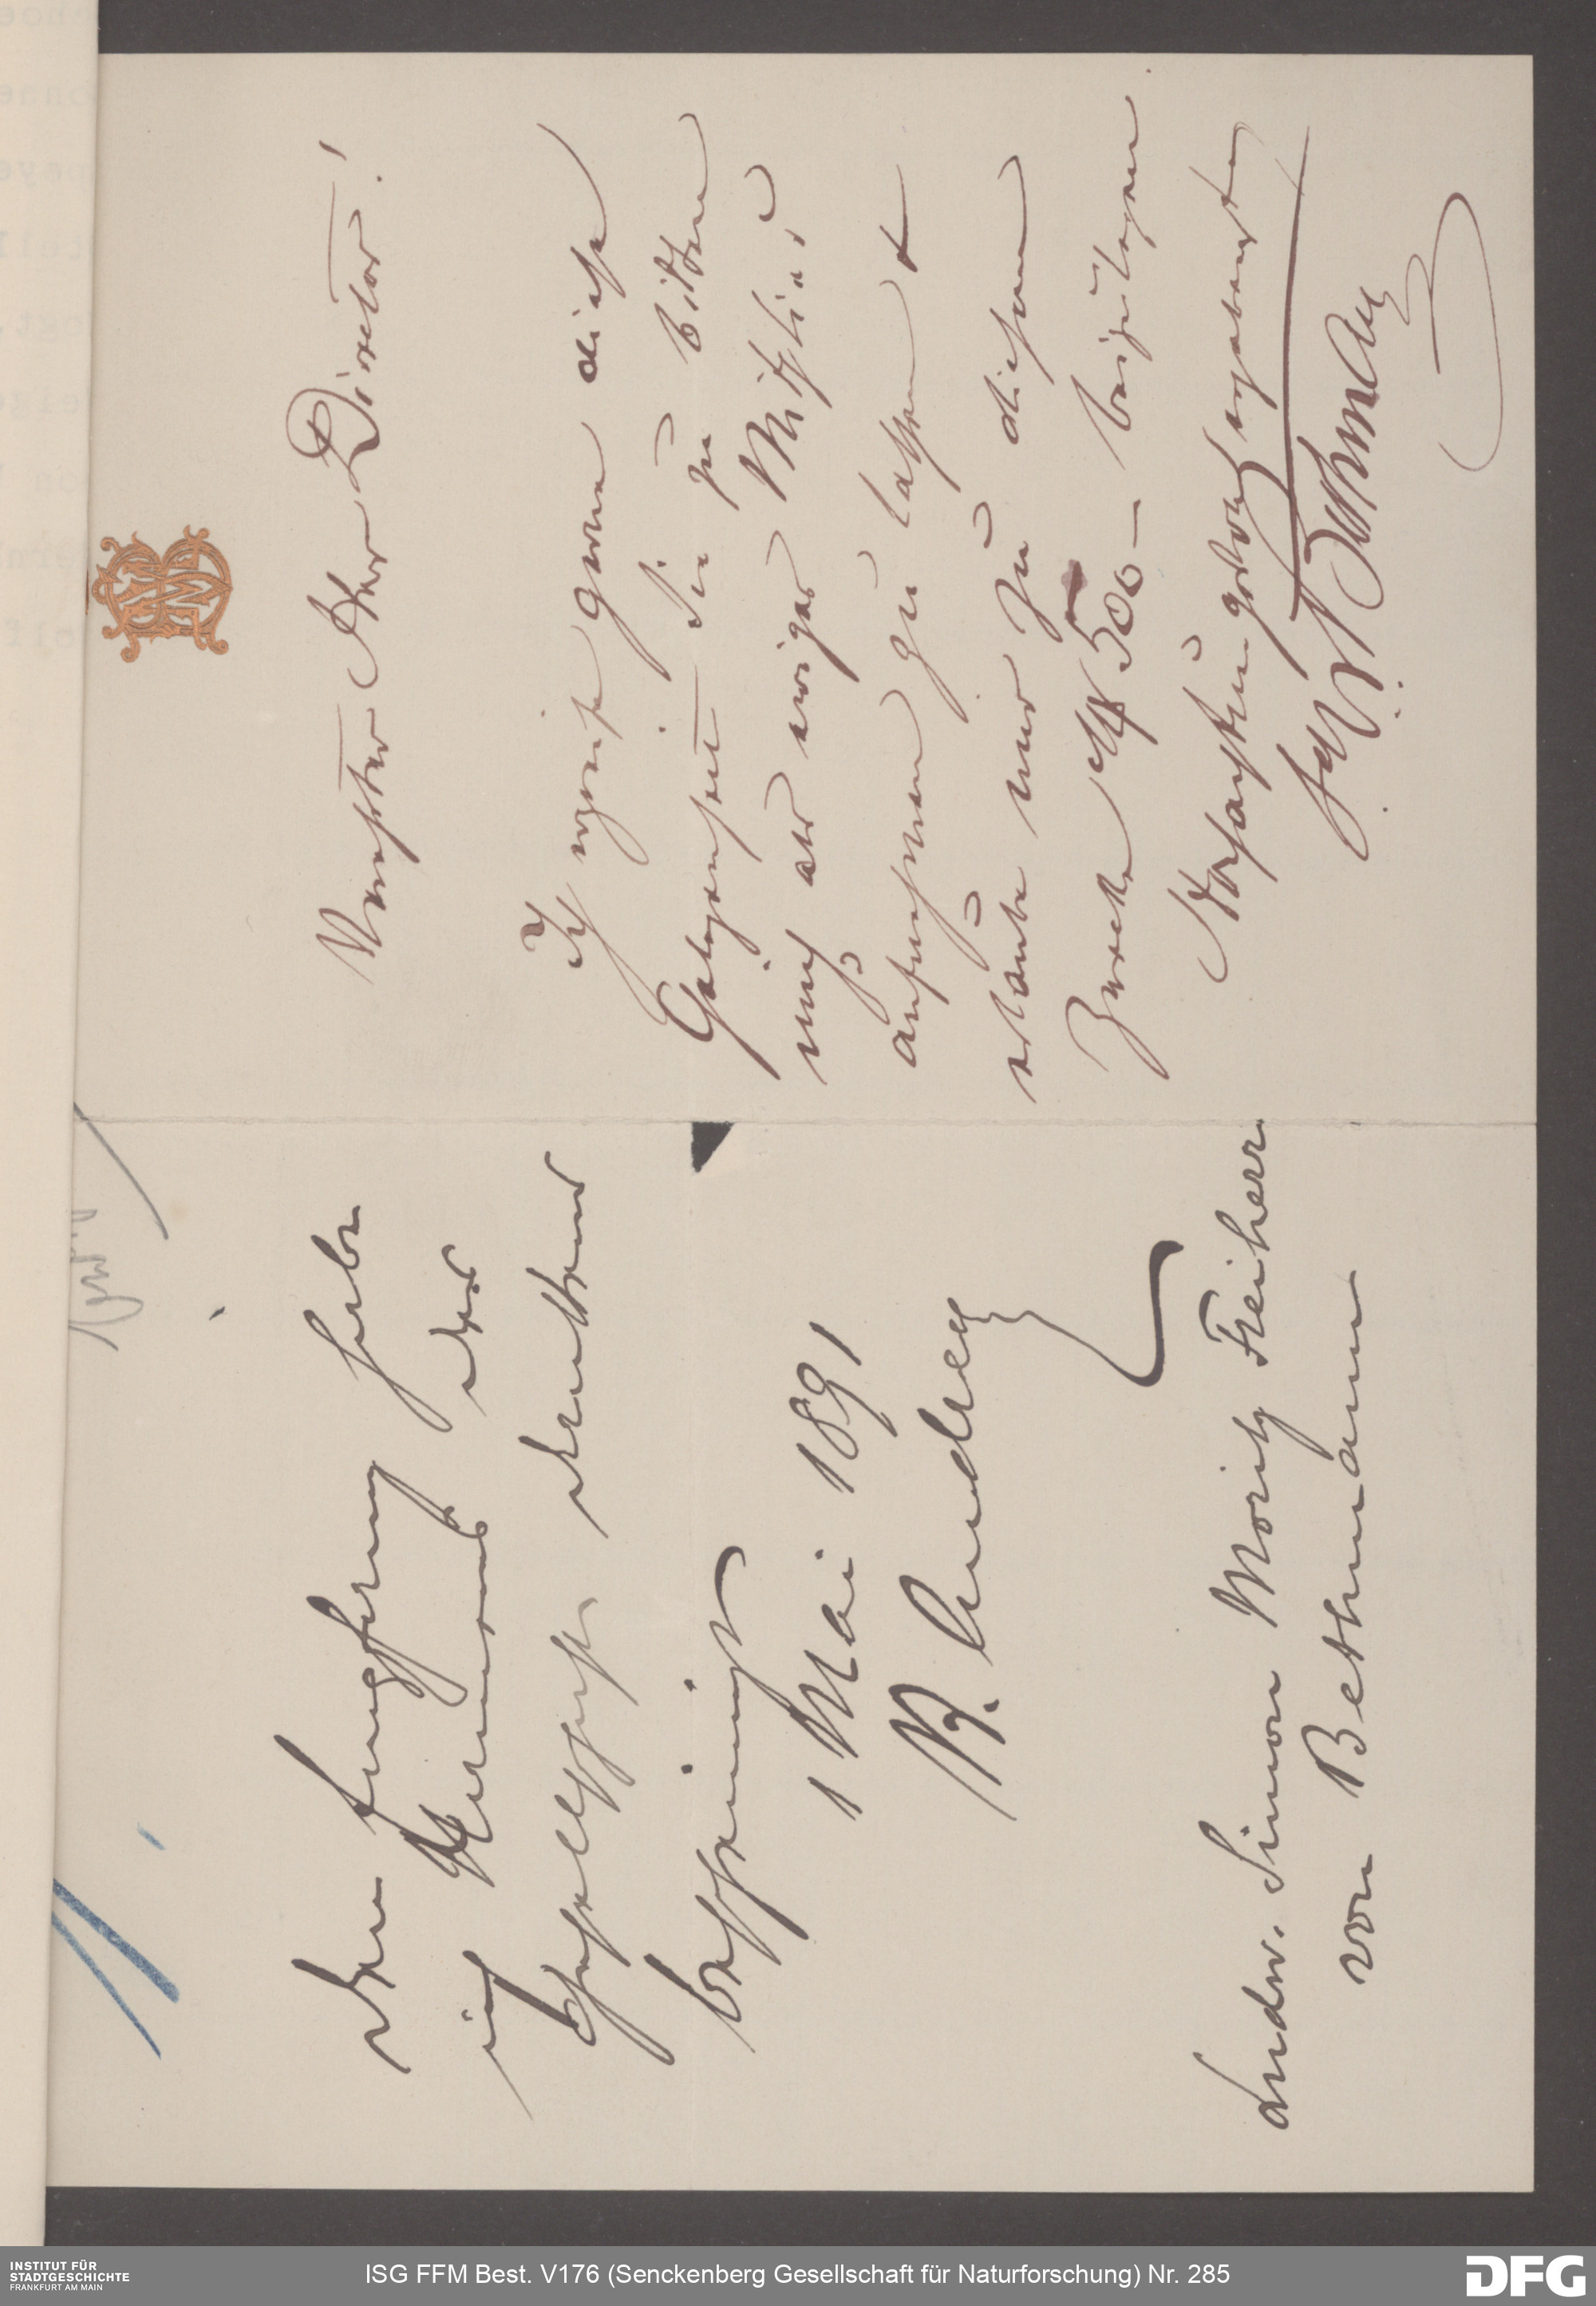 Verehrter Herr Director!
Ich ergreife gerne diese
Gelegenheit Sie zu bitten
mich als ewiges Mitglied
aufnehmen zu lassen &
erlaube mir zu diesem
Zwecke M 500 – beizulegen.
Hochachtungsvoll ergebenst
S M v Bethmann
Den Empfang habe
ich Namens der
Gesellschaft dankend
bescheinigt
1 Mai 1891
A. Andreae
Ludw. Simon Moritz Freiherr
von Bethmann
INSTITUT FÜR
STADTGESCHICHTE
FRANKFURT AM MAIN
ISG FFM Best. V176 (Senckenberg Gesellschaft für Naturforschung) Nr. 285
DFG